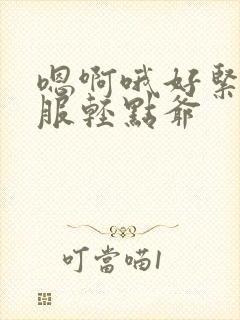 嗯啊哦好緊
服輕點爺
叮當喵1